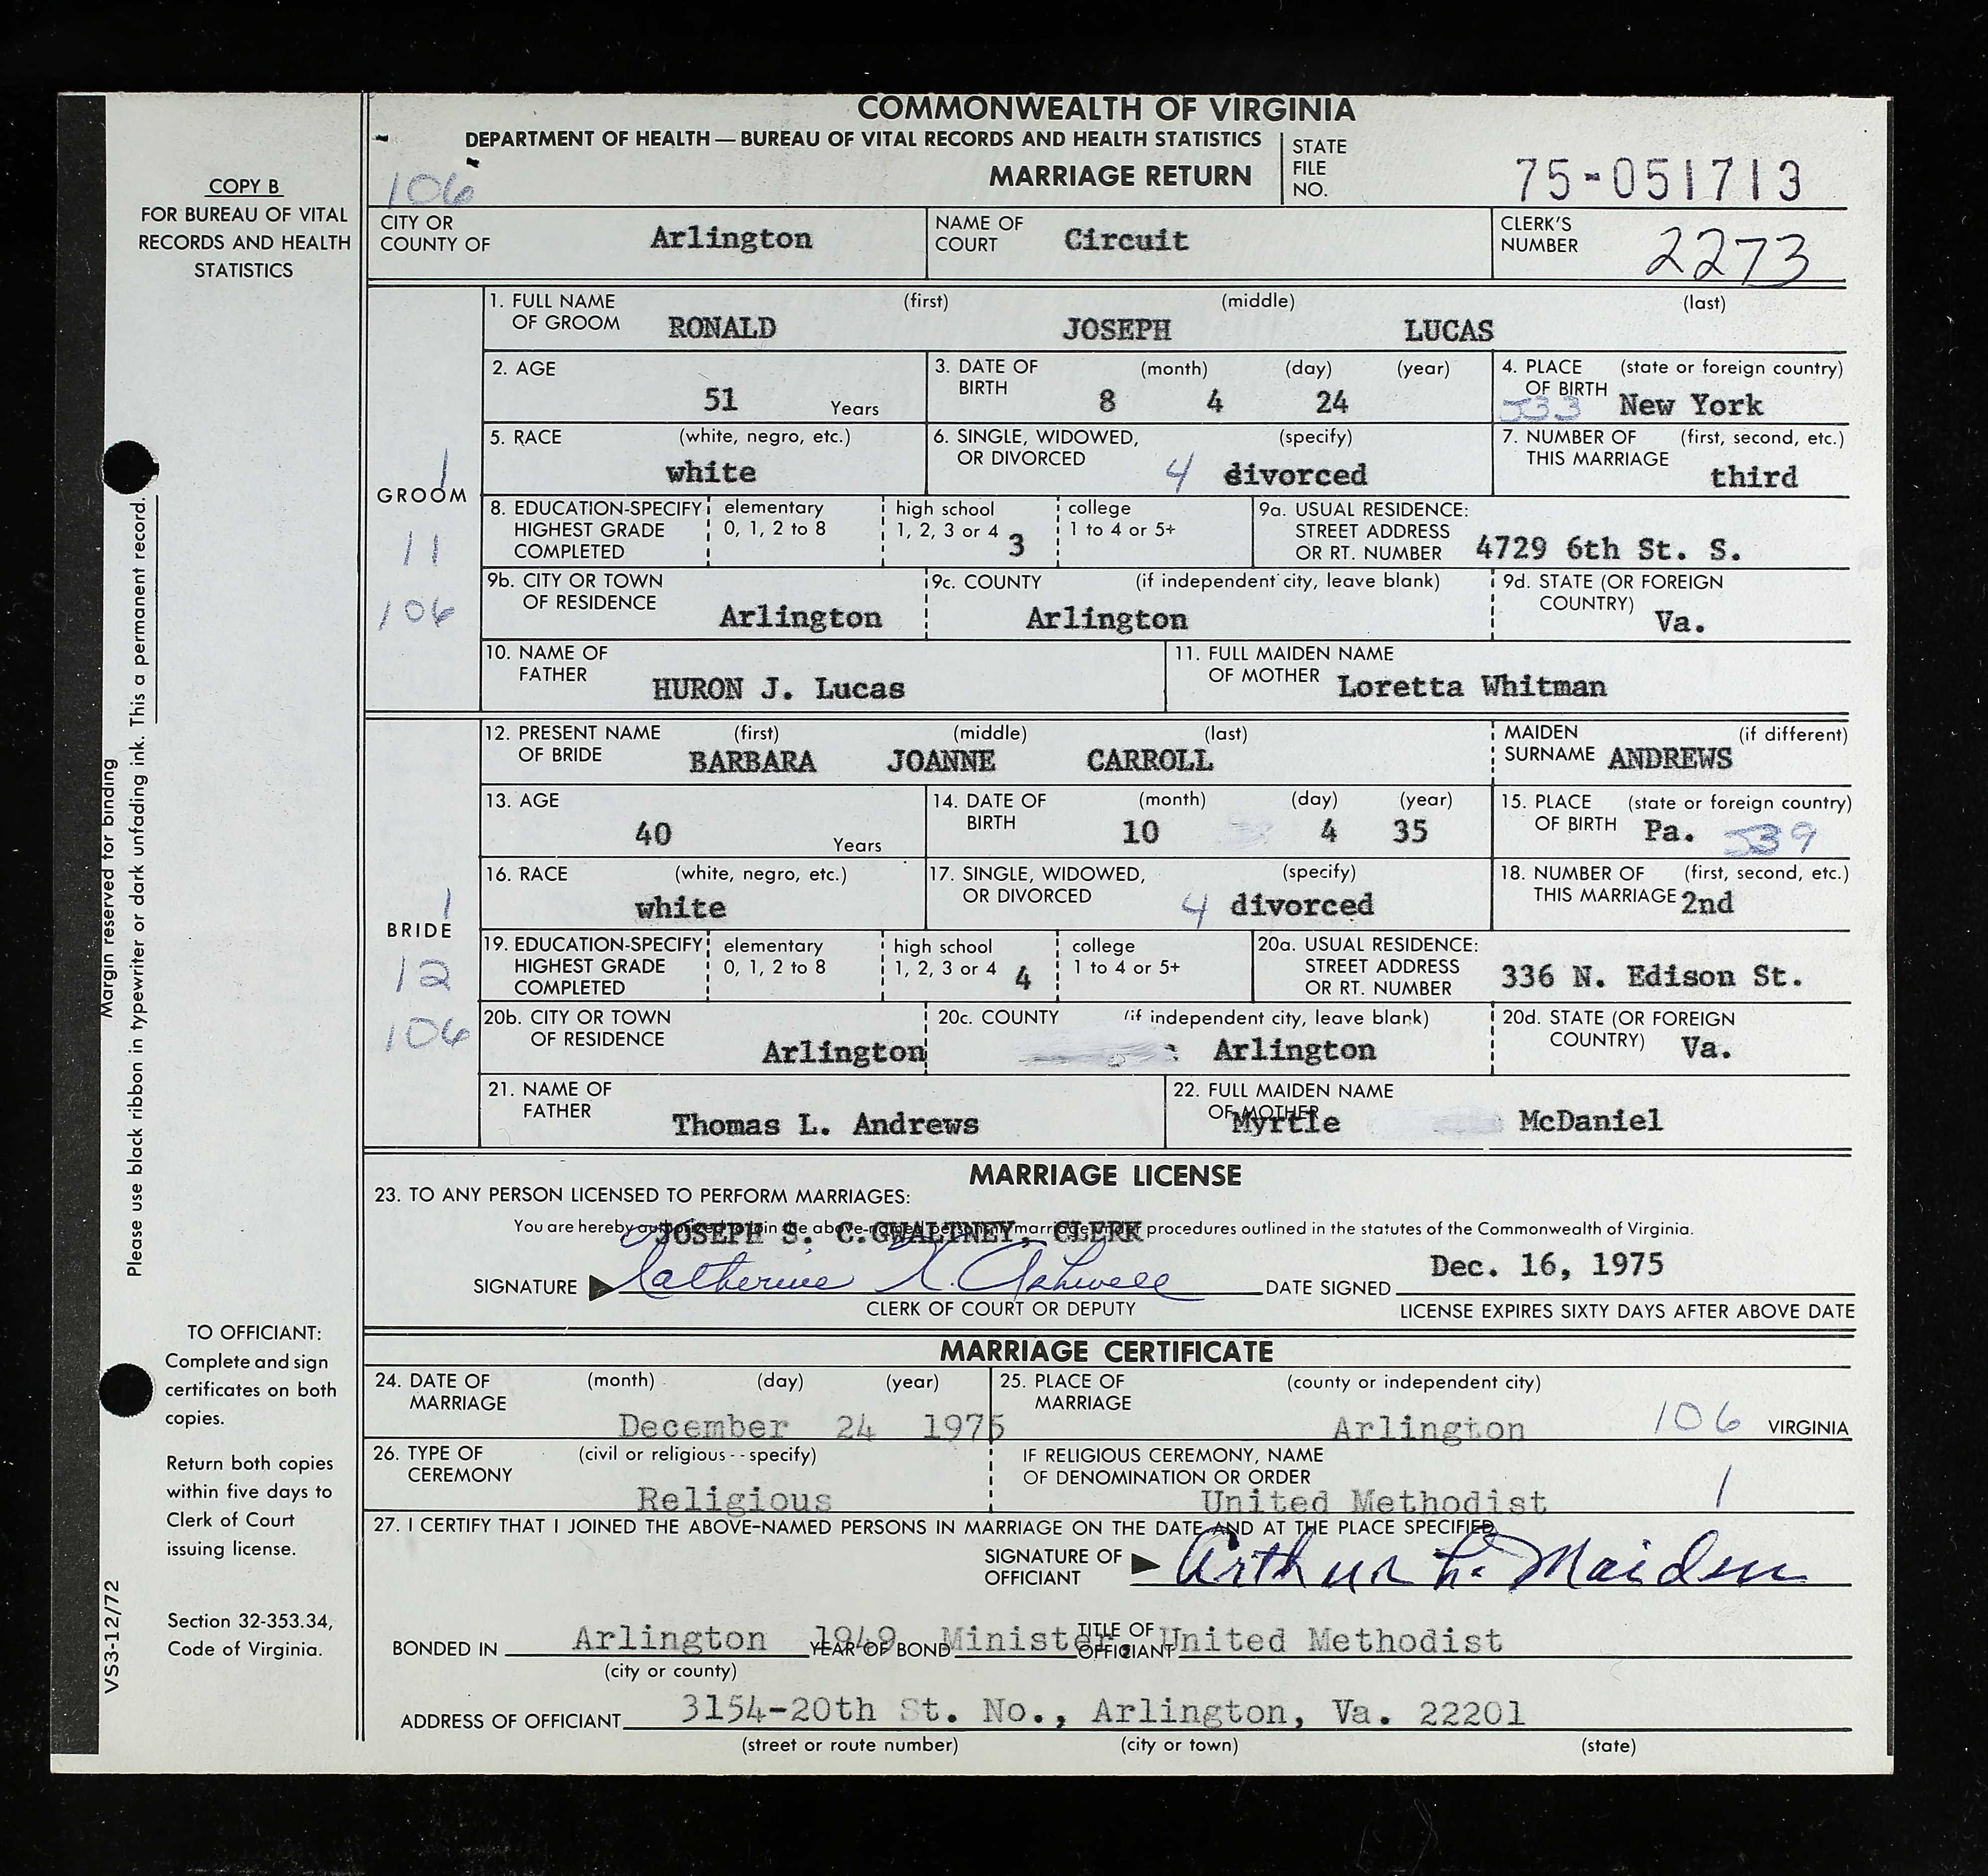 COMMONWEALTH OF VIRGINIA
DEPARTMENT OF HEALTH — BUREAU OF VITAL RECORDS AND HEALTH STATISTICS
MARRIAGE RETURN
STATE FILE NO. 75-051713
COPY B
FOR BUREAU OF VITAL
RECORDS AND HEALTH
STATISTICS
106
CITY OR COUNTY OF Arlington NAME OF COURT Circuit CLERK'S NUMBER 2273
GROOM
1
11
106
1. FULL NAME OF GROOM (first) RONALD (middle) JOSEPH (last) LUCAS
2. AGE 51 Years 3. DATE OF BIRTH (month) 8 (day) 4 (year) 24 4. PLACE OF BIRTH (state or foreign country) 533 New York
5. RACE (white, negro, etc.) white 6. SINGLE, WIDOWED, OR DIVORCED (specify) 4 divorced 7. NUMBER OF THIS MARRIAGE (first, second, etc.) third
8. EDUCATION-SPECIFY HIGHEST GRADE COMPLETED elementary 0, 1, 2 to 8 high school 1, 2, 3 or 4 3 college 1 to 4 or 5+ 9a. USUAL RESIDENCE: STREET ADDRESS OR RT. NUMBER 4729 6th St. S.
9b. CITY OR TOWN OF RESIDENCE Arlington 9c. COUNTY (if independent city, leave blank) Arlington 9d. STATE (OR FOREIGN COUNTRY) Va.
10. NAME OF FATHER HURON J. Lucas 11. FULL MAIDEN NAME OF MOTHER Loretta Whitman
BRIDE
1
12
106
12. PRESENT NAME OF BRIDE (first) BARBARA (middle) JOANNE (last) CARROLL MAIDEN SURNAME (if different) ANDREWS
13. AGE 40 Years 14. DATE OF BIRTH (month) 10 (day) 4 (year) 35 15. PLACE OF BIRTH (state or foreign country) Pa. 539
16. RACE (white, negro, etc.) white 17. SINGLE, WIDOWED, OR DIVORCED (specify) 4 divorced 18. NUMBER OF THIS MARRIAGE (first, second, etc.) 2nd
19. EDUCATION-SPECIFY HIGHEST GRADE COMPLETED elementary 0, 1, 2 to 8 high school 1, 2, 3 or 4 4 college 1 to 4 or 5+ 20a. USUAL RESIDENCE: STREET ADDRESS OR RT. NUMBER 336 N. Edison St.
20b. CITY OR TOWN OF RESIDENCE Arlington 20c. COUNTY (if independent city, leave blank) Arlington 20d. STATE (OR FOREIGN COUNTRY) Va.
21. NAME OF FATHER Thomas L. Andrews 22. FULL MAIDEN NAME OF MOTHER Myrtle McDaniel
MARRIAGE LICENSE
23. TO ANY PERSON LICENSED TO PERFORM MARRIAGES:
You are hereby authorized to join the above-named persons in marriage under procedures outlined in the statutes of the Commonwealth of Virginia.
JOSEPH S. C. GWALTNEY, CLERK
SIGNATURE Catherine N. Ashwell DATE SIGNED Dec. 16, 1975
CLERK OF COURT OR DEPUTY LICENSE EXPIRES SIXTY DAYS AFTER ABOVE DATE
MARRIAGE CERTIFICATE
24. DATE OF MARRIAGE (month) December (day) 24 (year) 1975 25. PLACE OF MARRIAGE (county or independent city) Arlington 106 VIRGINIA
26. TYPE OF CEREMONY (civil or religious--specify) Religious IF RELIGIOUS CEREMONY, NAME OF DENOMINATION OR ORDER United Methodist 1
27. I CERTIFY THAT I JOINED THE ABOVE-NAMED PERSONS IN MARRIAGE ON THE DATE AND AT THE PLACE SPECIFIED.
SIGNATURE OF OFFICIANT Arthur L. Maiden
BONDED IN Arlington YEAR OF BOND 1949 TITLE OF OFFICIANT Minister, United Methodist
(city or county)
ADDRESS OF OFFICIANT 3154-20th St. No., Arlington, Va. 22201
(street or route number) (city or town) (state)
Margin reserved for binding
Please use black ribbon in typewriter or dark unfading ink. This a permanent record.
TO OFFICIANT:
Complete and sign
certificates on both
copies.
Return both copies
within five days to
Clerk of Court
issuing license.
Section 32-353.34,
Code of Virginia.
VS3-12/72